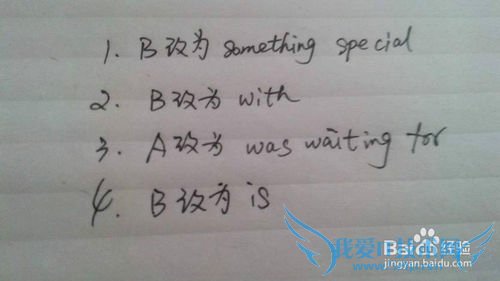 1. B改为 something special
2. B改为 with
3. A改为 was waiting for
4. B改为 is
Baidu经验
jingyan.baidu.com